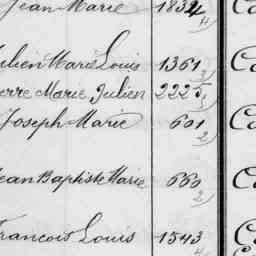 Jean Marie 1834 4/ Ca
Julien Marie Louis 1361 2/ Ca
Pierre Marie Julien 2225 5/
Joseph Marie 601 2/ Ca
Jean Baptiste Marie 660 2/ Ca
Francois Louis 1543 4/